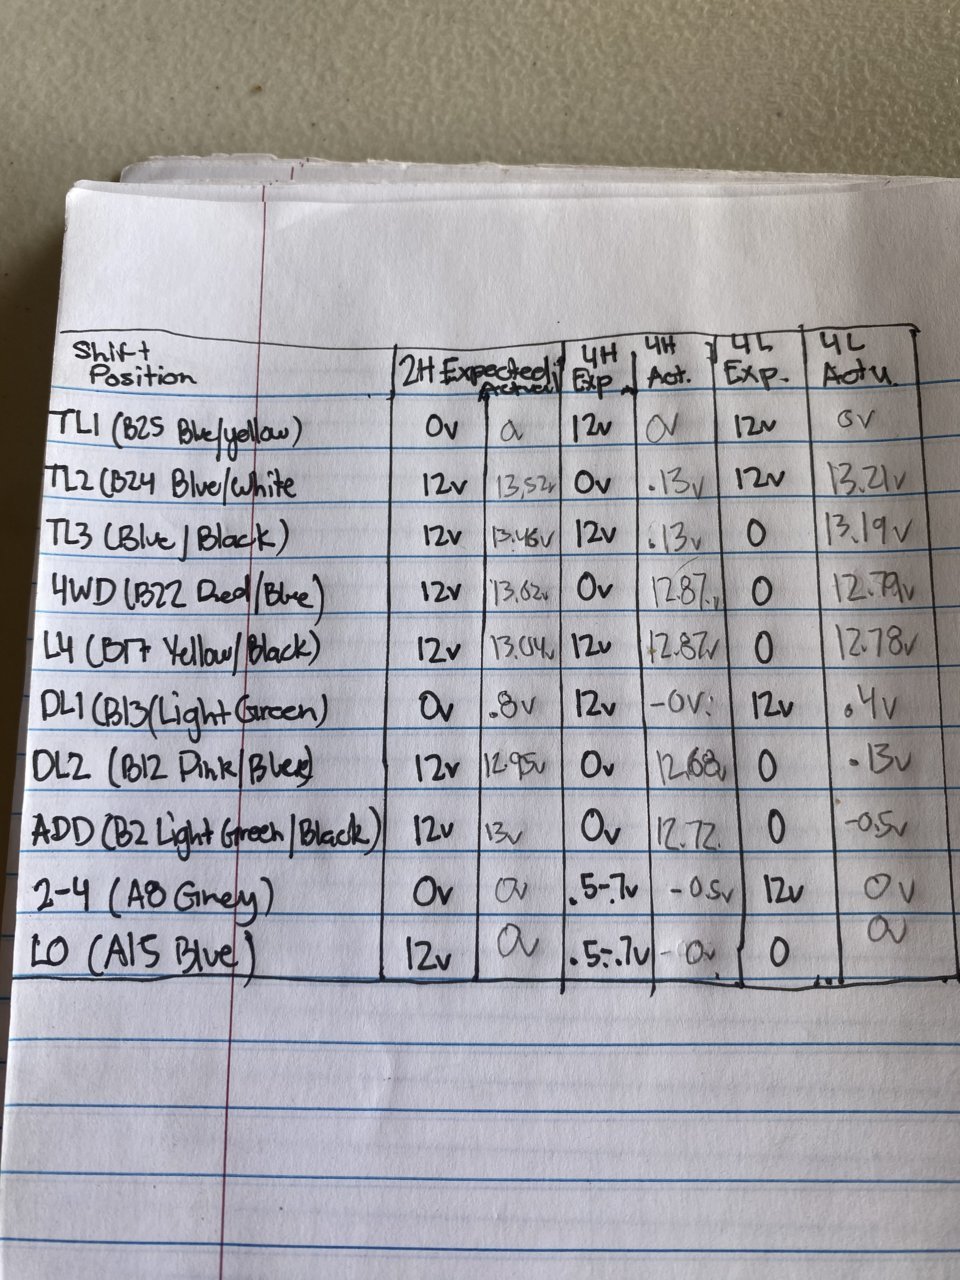 Shift Position 2H Expected Actual 4H Exp. 4H Act. 4L Exp. 4L Actu.
TL1 (B25 Blue/yellow) 0v 0 12v 0v 12v 0v
TL2 (B24 Blue/White 12v 13.52v 0v .13v 12v 13.21v
TL3 (Blue/Black) 12v 13.46v 12v .13v 0 13.19v
4WD (B22 Red/Blue) 12v 13.02v 0v 12.87v 0 12.79v
L4 (B17 Yellow/Black) 12v 13.04v 12v 12.82v 0 12.78v
DL1 (B13 (Light Green) 0v .8v 12v -0v. 12v .4v
DL2 (B12 Pink/Blue) 12v 12.95v 0v 12.68v 0 .13v
ADD (B2 Light Green/Black) 12v 13v 0v 12.72. 0 -0.5v
2-4 (A8 Grey) 0v 0v .5-.7v -0.5v 12v 0v
LO (A15 Blue) 12v 0v .5-.7v -0v 0 0v